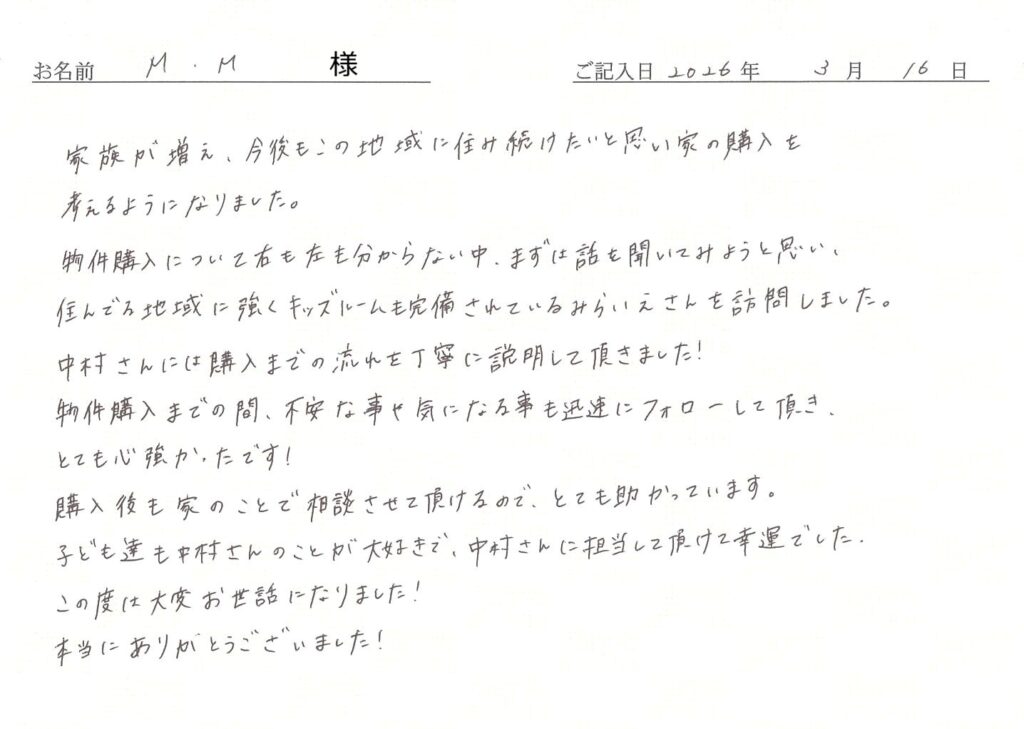 お名前 M.M 様 ご記入日 2026年 3月 16日
家族が増え、今後もこの地域に住み続けたいと思い家の購入を
考えるようになりました。
物件購入について右も左も分からない中、まずは話を聞いてみようと思い、
住んでる地域に強くキッズルームも完備されているみらいえさんを訪問しました。
中村さんには購入までの流れを丁寧に説明して頂きました!
物件購入までの間、不安な事や気になる事も迅速にフォローして頂き、
とても心強かったです!
購入後も家のことで相談させて頂けるので、とても助かっています。
子ども達も中村さんのことが大好きで、中村さんに担当して頂けて幸運でした.
この度は大変お世話になりました!
本当にありがとうございました!